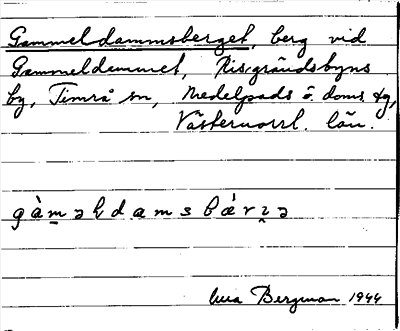 Gammeldammsberget, berg vid
Gammeldammet, Risgrändsbyns
by, Timrå sn, Medelpads ö. doms. tg,
Västernorrl. län.
gàməldamsbǽrɩ̭ə
Bergman 1944